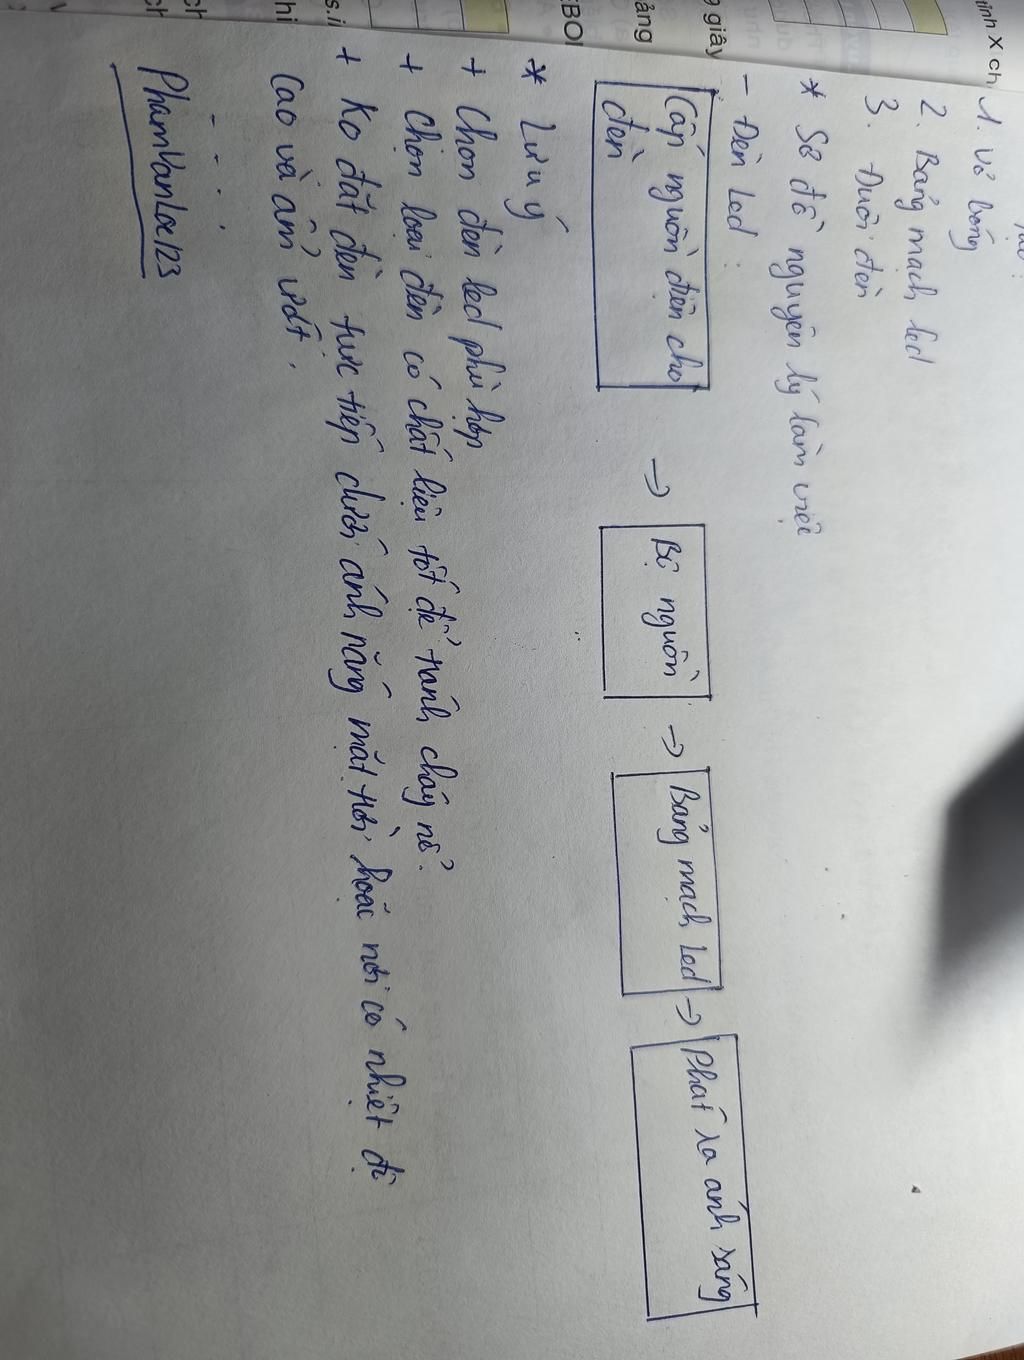 1. Vỏ bóng
2. Bảng mạch led
3. Đuôi đèn
* Sơ đồ nguyên lý làm việc
- Đèn Led :
Cấp nguồn điện cho
đèn
→ Bộ nguồn → Bảng mạch Led → Phát ra ánh sáng
* Lưu ý
+ Chọn đèn led phù hợp
+ Chọn loại đèn có chất liệu tốt để tránh cháy nổ.
+ Ko đặt đèn trực tiếp dưới ánh nắng mặt trời hoặc nơi có nhiệt độ
Cao và ẩm ướt.
PhamVanLoc123